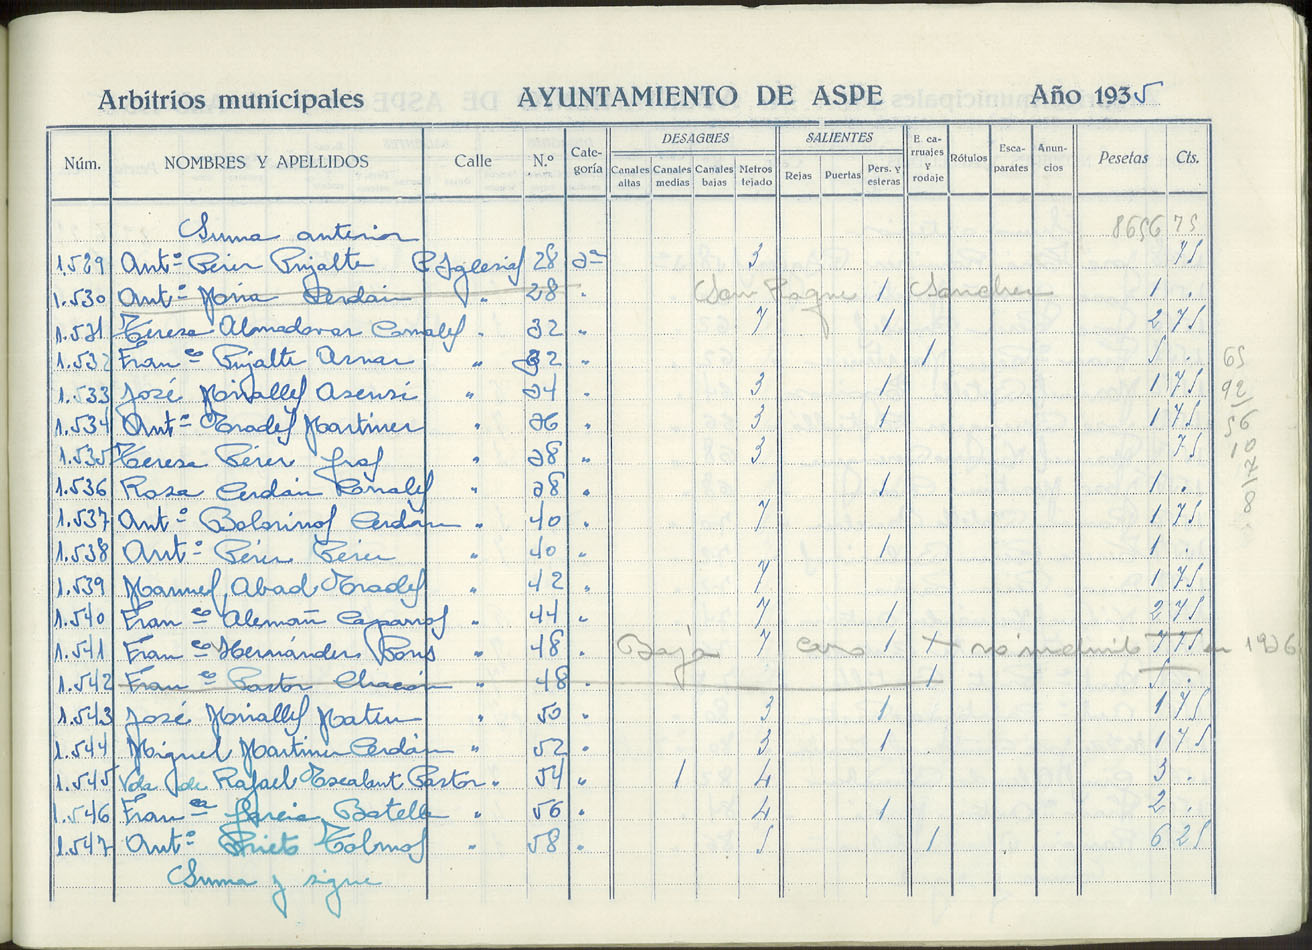 Arbitrios municipales AYUNTAMIENTO DE ASPE Año 1935
Núm. NOMBRES Y APELLIDOS Calle N.º Cate-goría DESAGÜES Canales altas Canales medias Canales bajas Metros tejado SALIENTES Rejas Puertas Pers. y esteras E. ca-rruajes y rodaje Rótulos Esca-parates Anun-cios Pesetas Cts.
Suma anterior 8656 75
1.529 Antº Pérez Pujalte P Iglesias 28 2ª 3 75
1.530 Antº Mira Cerdán " 28 " San Roque 1 Sanchez 1 .
1.531 Teresa Almodovar " 32 " 7 1 2 75
1.532 Franco Pujalte Aznar " 32 " 1 5 .
1.533 José Miralles Asensi " 34 " 3 1 1 75
1.534 Antº Prades Martinez " 36 " 3 1 1 75
1.535 Teresa Pérez Gras " 38 " 3 75
1.536 Rosa Cerdán " 38 " 1 1 .
1.537 Antº Botorinos Cerdán " 40 " 7 1 75
1.538 Antº Pérez Pérez " 40 " 1 1 .
1.539 Manuel Abad Prades " 42 " 7 1 75
1.540 Franco Alemañ Caparros " 44 " 7 1 2 75
1.541 Franco Hernández Pons " 48 " Baja 7 carro 1 1 7 75 en 1936
1.542 Franco Pastor Chacón " 48 " 1 5 .
1.543 José Miralles " 50 " 3 1 1 75
1.544 Miguel Martinez Cerdán " 52 " 3 1 1 75
1.545 Vda de Rafael Escalant Pastor " 54 " 1 4 3 .
1.546 Franca García Botella " 56 " 4 1 2 .
1.547 Antº Prieto " 58 " 5 1 6 25
Suma y sigue
65
92
56
10